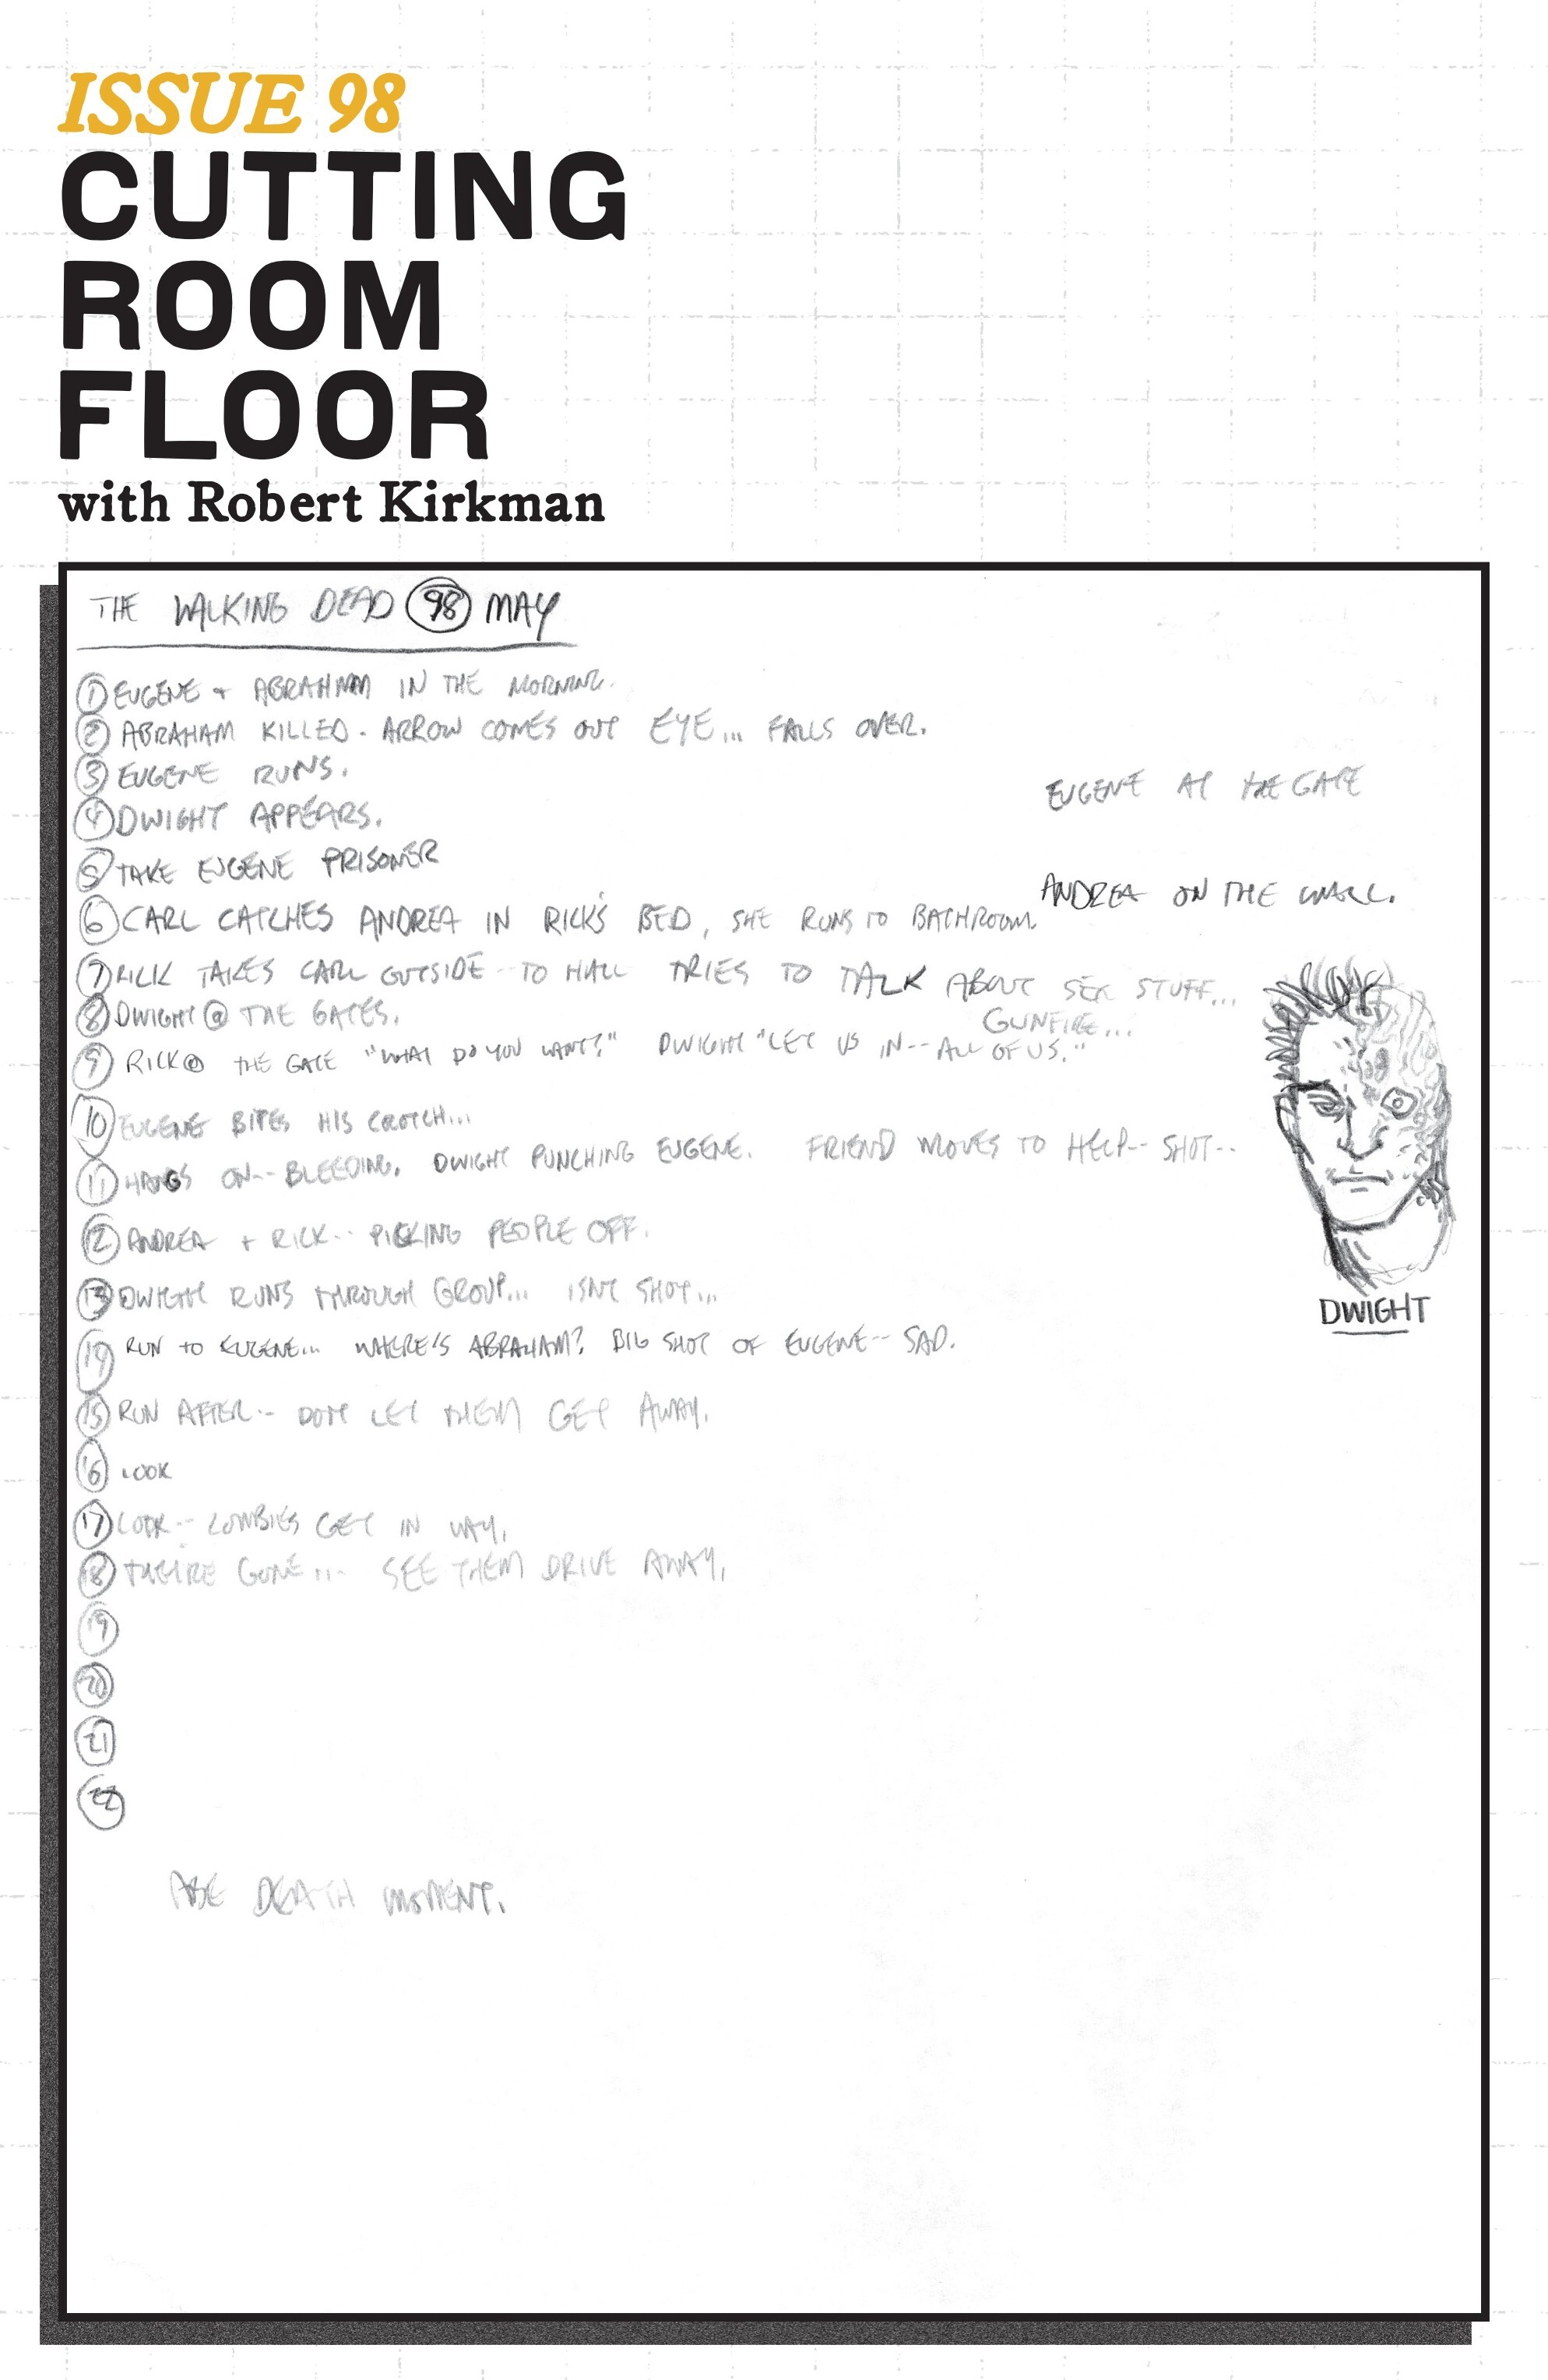 ISSUE 98
CUTTING
ROOM
FLOOR
with Robert Kirkman
THE WALKING DEAD 98 MAY
1 EUGENE + ABRAHAM IN THE MORNING.
2 ABRAHAM KILLED - ARROW COMES OUT EYE... FALLS OVER.
3 EUGENE RUNS.
4 DWIGHT APPEARS.
5 TAKE EUGENE PRISONER
6 CARL CATCHES ANDREA IN RICK'S BED, SHE RUNS TO BATHROOM.
7 RICK TAKES CARL OUTSIDE -- TO HALL TRIES TO TALK ABOUT SEX STUFF...
GUNFIRE...
8 DWIGHT @ THE GATES.
9 RICK @ THE GATE "WHAT DO YOU WANT?" DWIGHT "LET US IN-- ALL OF US."
10 EUGENE BITES HIS CROTCH...
11 HANGS ON-- BLEEDING. DWIGHT PUNCHING EUGENE. FRIEND MOVES TO HELP-- SHOT--
12 ANDREA + RICK -- PICKING PEOPLE OFF.
13 DWIGHT RUNS THROUGH GROUP... ISNT SHOT...
14 RUN TO EUGENE... WHERE'S ABRAHAM? BIG SHOT OF EUGENE -- SAD.
15 RUN AFTER -- DONT LET THEM GET AWAY.
16 LOOK
17 LOOK -- ZOMBIES GET IN WAY.
18 THEY'RE GONE... SEE THEM DRIVE AWAY.
19
20
21
22
ABE DEATH MOMENT.
EUGENE AT THE GATE
ANDREA ON THE WALL.
DWIGHT